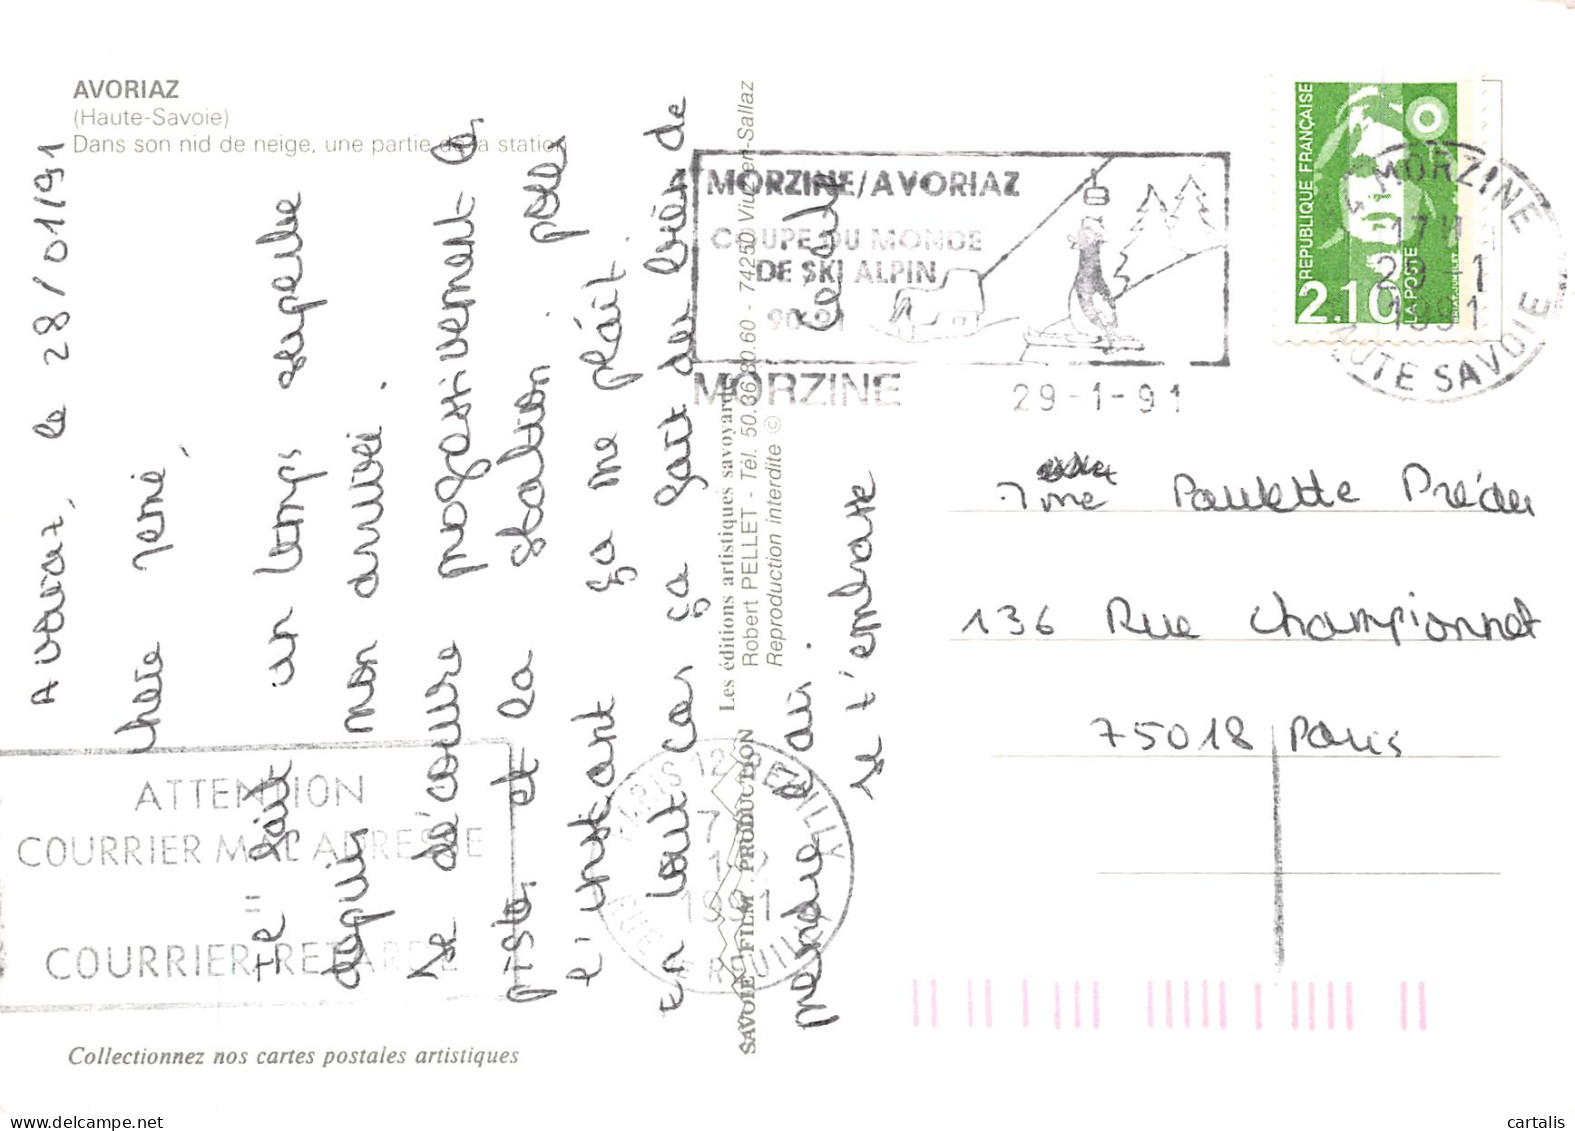 AVORIAZ
(Haute-Savoie)
Dans son nid de neige, une partie de la station
Avoriaz, le 28/01/91
chère mémé,
Il fait un temps superbe
depuis mon arrivée.
Je découvre progessivement les
pistes et la station. pour
l'instant ça me plaît.
En tout cas ça fait du bien de
prendre l'air.
Je t'embrasse
Les éditions artistiques savoyardes
Robert PELLET - Tél. 50.36.80.60 - 74250 Viuz-en-Sallaz
Reproduction interdite ©
SAVOIE FILM PRODUCTION
MORZINE/AVORIAZ
COUPE DU MONDE
DE SKI ALPIN
90-91
MORZINE
29-1-91
RÉPUBLIQUE FRANÇAISE
2,10
LA POSTE
MORZINE
17H
29-1
1991
HAUTE SAVOIE
Mme Paulette
136 Rue Championnet
75018 Paris
ATTENTION
COURRIER MAL ADRESSE
=
COURRIER RETARDE
PARIS 12 REUILLY
1991
Collectionnez nos cartes postales artistiques
delcampe.net
cartalis